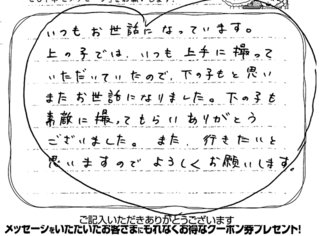 いつもお世話になっています。
上の子では、いつも上手に撮って
いただいていたので、下の子もと思い
またお世話になりました。下の子も
素敵に撮ってもらいありがとう
ございました。また、行きたいと
思いますのでよろしくお願いします。
ご記入いただきありがとうございます
メッセージをいただいたお客さまにもれなくお得なクーポン券プレゼント!